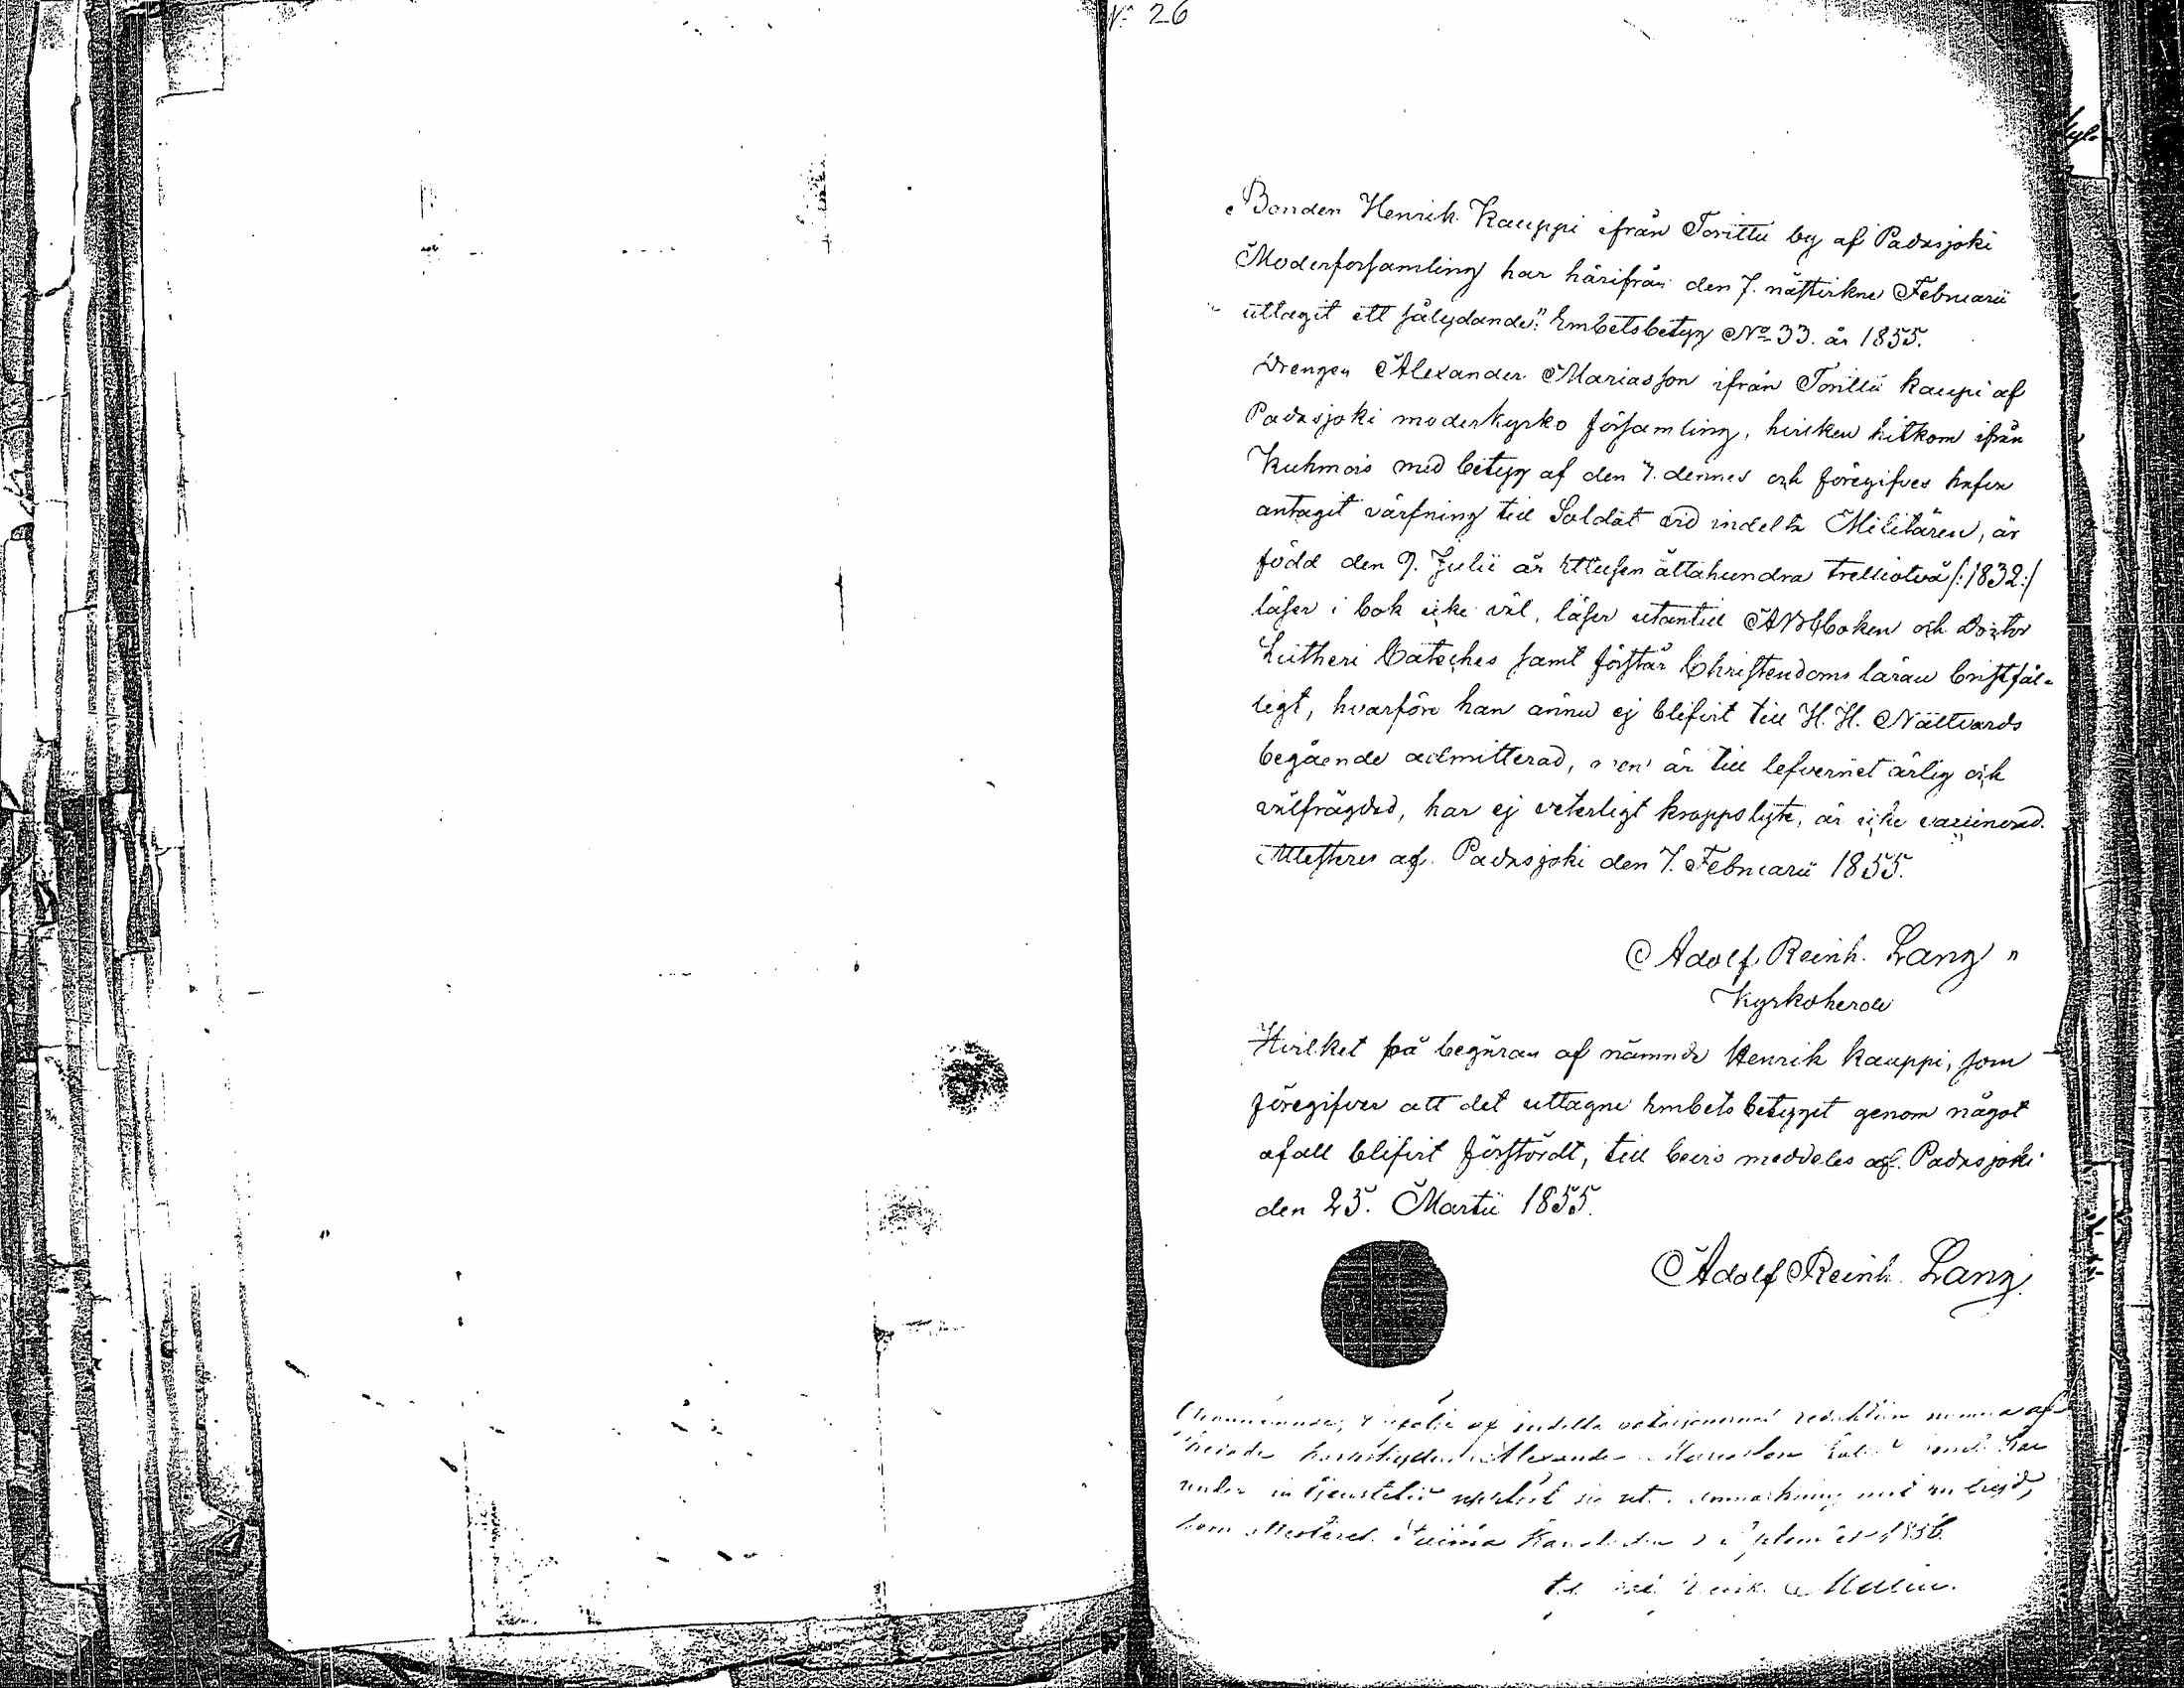 N: 26
Bonden Henrik Kauppi ifrån Torittu by af Padasjoki
Moderforsamling har härifrån den 7. nästvikne Februarii
uttagit ett sålydande: "Embetsbetyg No 33. år 1855.
Drengen Alexander Mariasson ifrån Torittu Kaupi af
Padasjoki moderkyrko församling, hvilken hitkom ifrån
Kuhmois med betyg af den 7. dennes och föregifves hafva
antagit värfning till Soldat vid indelta Militären, är
född den 9. Julii år Ettusen åttahundra trettiotvå /:1832:/
läser i bok icke väl, läser utantill ABCboken och Doctor
Lutheri Cateches samt förstår Christendoms läran bristfäl-
ligt, hvarföre han ännu ej blifvit till H. H. Nattvards
begående admitterad, men är till lefvernet ärlig och
välfrägdad, har ej veterligt kroppslyte, är icke vaccinerad.
Attesteras af. Padasjoki den 7. Februarii 1855.
Adolf Reinh. Lang "
Kyrkoherde
Hvilket på begäran af nämnde Henrik Kauppi, som
föregifver att det uttagne Embetsbetyget genom något
afall blifvit förstördt, till bevis meddeles af. Padasjoki
den 25. Martii 1855.
Adolf Reinh. Lang
af indelta reduktion af
Alexander har
under med
som attesteras. den 1856.